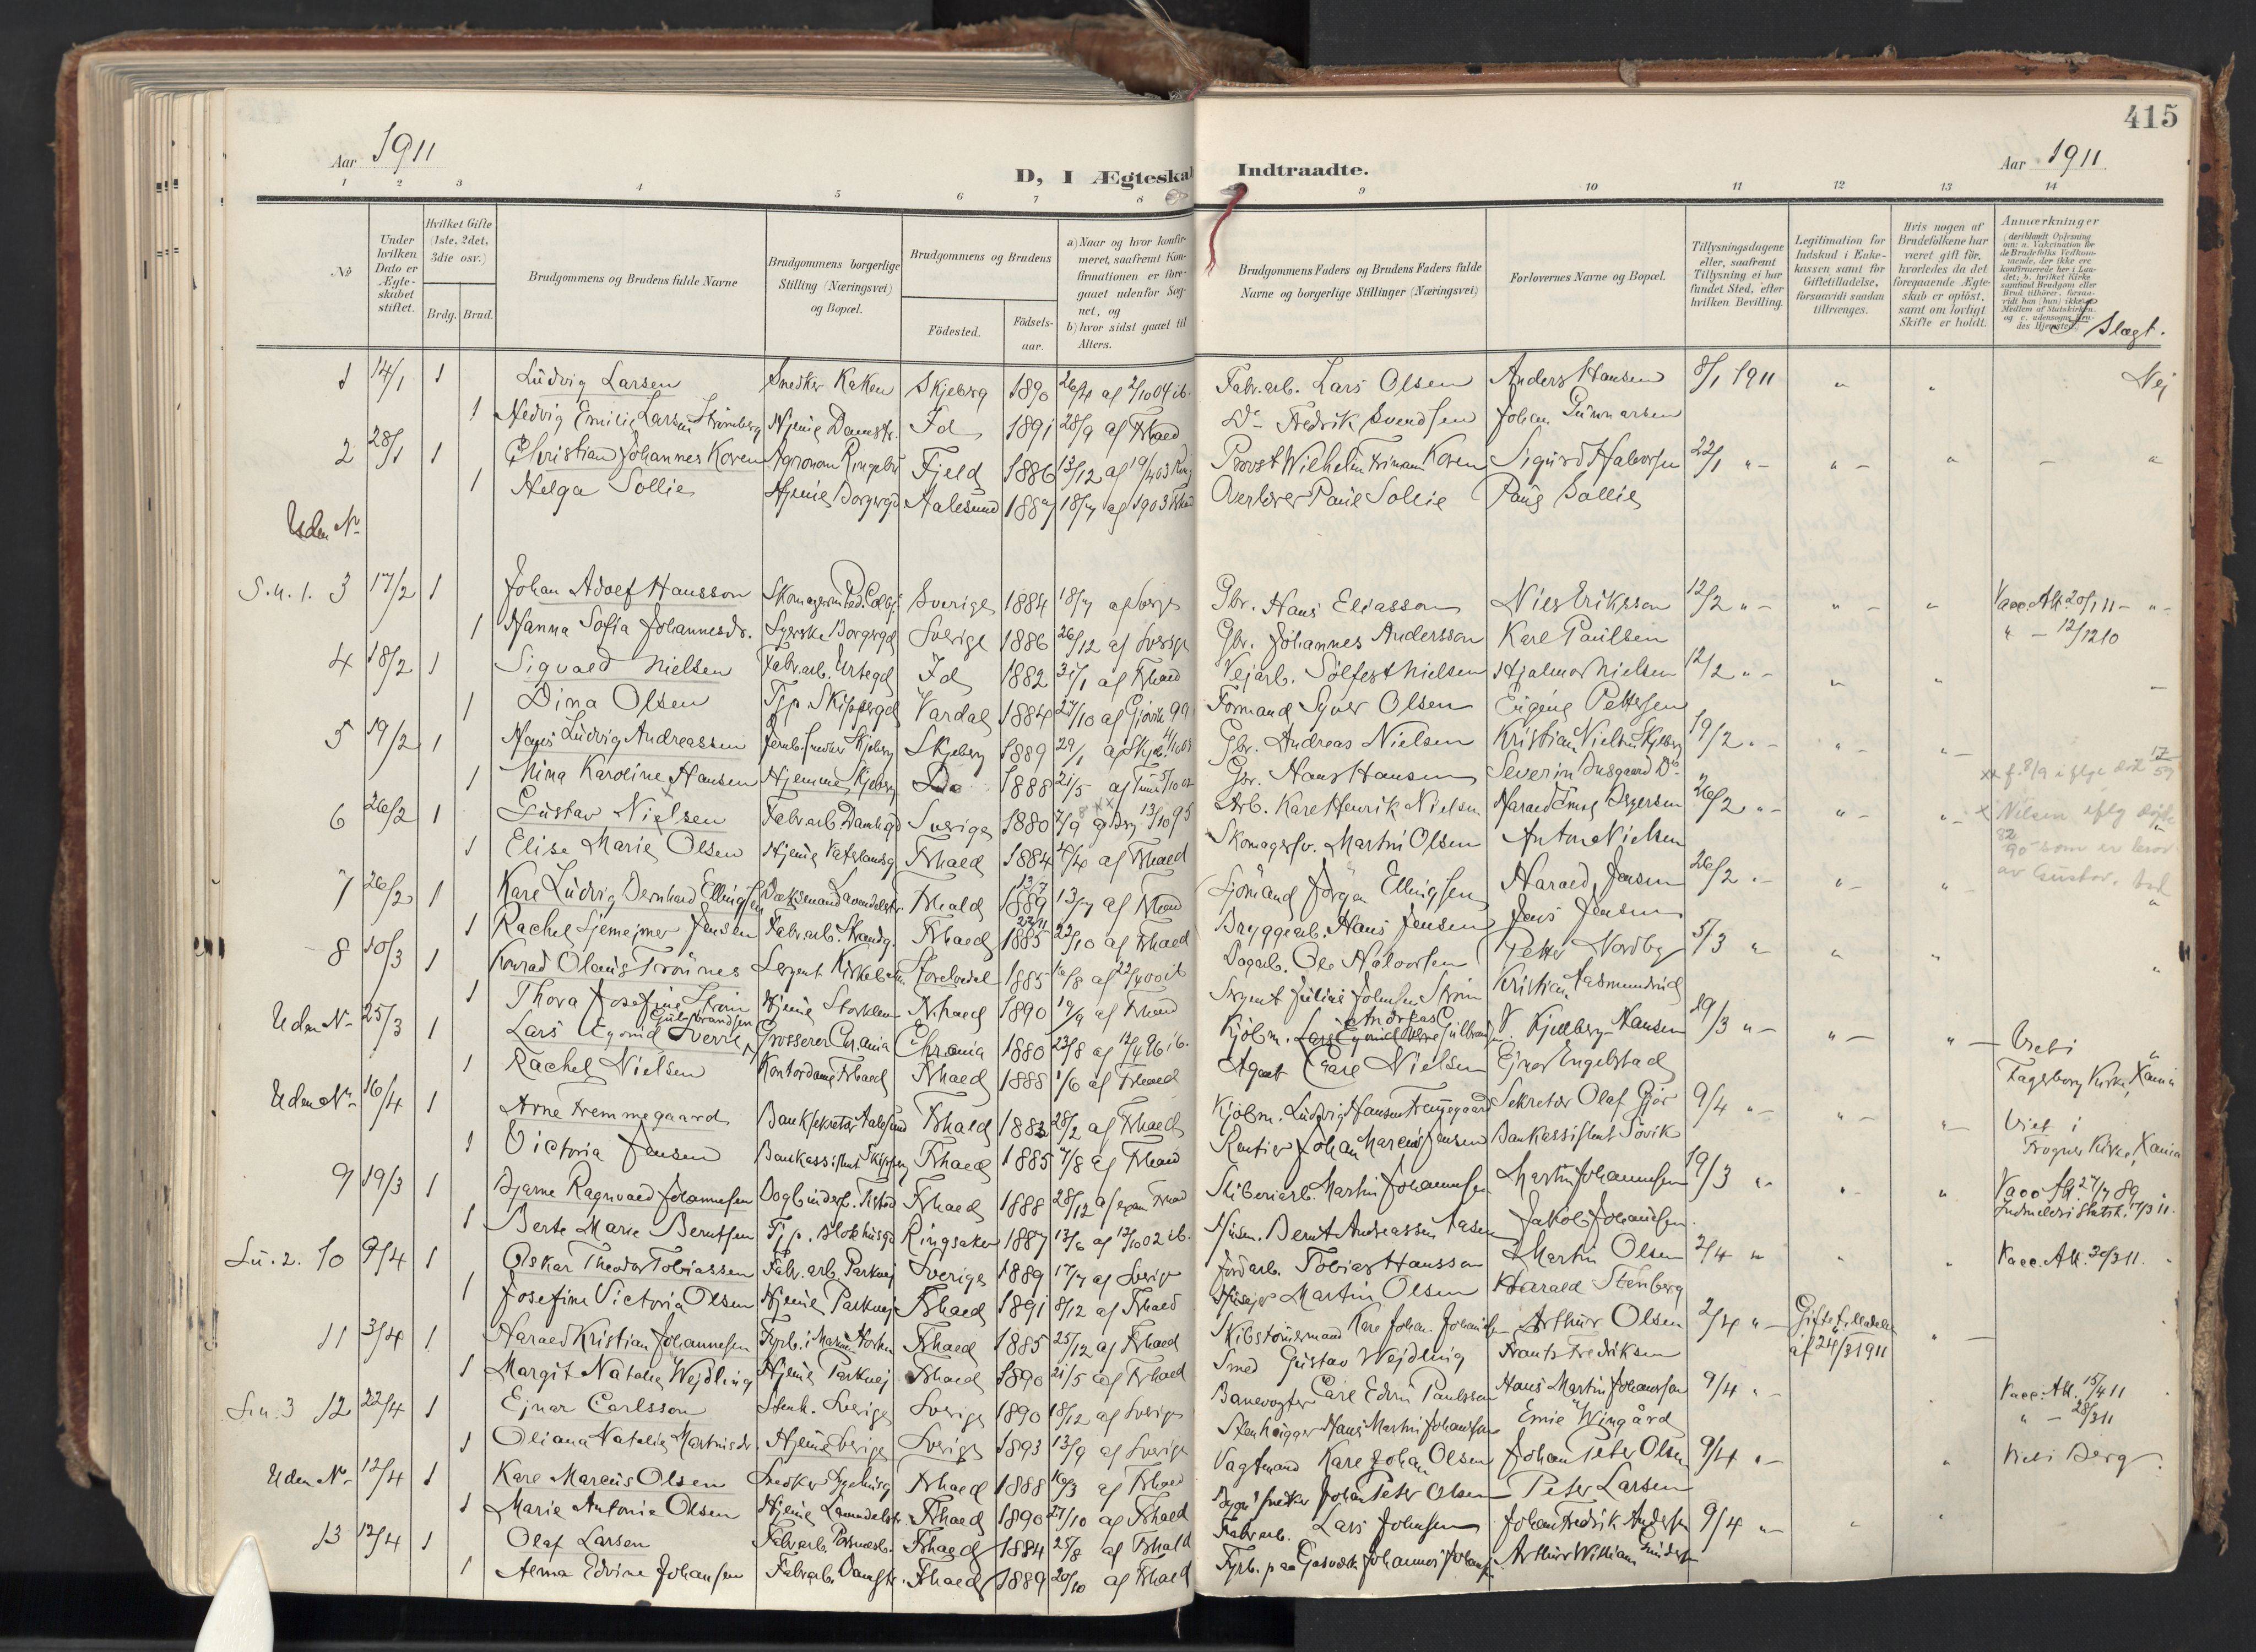 415
Aar 1911
Aar 1911
D, I Ægteskab Indtraadte.
1 2 3 4 5 6 7 8 9 10 11 12 13 14
No
Under hvilken Dato er Ægteskabet stiftet.
Hvilket Gifte (1ste, 2det, 3die osv.)
Brdg. Brud.
Brudgommens og Brudens fulde Navne
Brudgommens borgerlige Stilling (Næringsvei) og Bopæl.
Brudgommens og Brudens
Födested.
Födselsaar.
a) Naar og hvor konfirmeret, saafremt Konfirmationen er foregaaet udenfor Sognet, og
b) hvor sidst gaaet til Alters.
Brudgommens Faders og Brudens Faders fulde Navne og borgerlige Stillinger (Næringsvei)
Forlovernes Navne og Bopæl.
Tillysningsdagene eller, saafremt Tillysning ei har fundet Sted, efter hvilken Bevilling.
Legitimation for Indskud i Enkekassen samt for Giftetilladelse, forsaavidt saadan tiltrænges.
Hvis nogen af Brudefolkene har været gift för, hvorledes da det foregaaende Ægteskab er oplöst, samt om lovligt Skifte er holdt.
Anmærkninger
Slægt.
1 14/1 1 Ludvig Larsen Snedker Kaken Skjeberg 1890 26/4 af 2/10 04 ib. Fabr.arb. Lars Olsen Anders Hansen 8/1 1911 " " Nej
1 Hedvig Emilie Larsen Strömberg Hjeme Damstr. Id 1891 28/9 af Frhald Do Fredrik Svendsen Johan Gunnarsen
2 28/1 1 Christian Johannes Koren Agronom Ringebu Fjeld 1886 13/12 af 19/4 03 Provst Wilhelm Friman Koren Sigurd Halvorsen 22/1 " -
1 Helga Sollie Hjeme Borgergd Aalesund 1887 18/7 af 1903 Frhald Overlærer Paul Sollie Paul Sollie
Uden No
S.u. 1. 3 17/2 1 Johan Adolf Hansson Sverige 1884 18/7 af Sverige Gbr. Hans Eliasson Nils Eriksson 12/2 " - Vacc. Att. 20/1 11 -
1 Hanna Sofia Johannesdr. Syerske Borgergd Sverige 1886 26/12 af Sverige Gbr. Johannes Andersson Karl Paulsen " - 12/12 10
4 18/2 1 Sigvald Nielsen Fabr.arb. Urtegd Id 1882 31/1 af Frhald Vejarb. Sölfest Nielsen Hjalmar Nielsen 12/2 " -
1 Dina Olsen Tjp. Skippergd Vardal 1884 27/10 af Gjövik 99 Formand Syver Olsen Eugene Pettersen
5 19/2 1 Hans Ludvig Andreassen Skjeberg 1889 29/1 af Skjeb. 4/10 03 Gbr. Andreas Nielsen Kristian Nielsen Skjeberg 19/2 " -
1 Nina Karoline Hansen Hjemme Skjeberg Do 1888 21/5 af Tune 5/10 02 Gbr. Hans Hansen Severin Do
6 26/2 1 Gustav Nielsen Fabr.arb. Damhgd Sverige 1880 7/9 13/10 95 Arb. Karl Henrik Nielsen Harald Emil 26/2 " -
1 Elise Marie Olsen Hjeme Vaterlandsg Frhald 1884 4/4 af Frhald Skomagersv. Martin Olsen Anton Nielsen
7 26/2 1 Karl Ludvig Bernhard Ellingsen Frhald 1889 13/7 13/7 af Frhald Sjömand Jörgen Ellingsen Harald Jensen 26/2 " -
1 Rachel Jensen Fabr.arb. Strandg. Frhald 1885 22/10 af Frhald Bryggearb. Hans Jensen Jens Jensen
8 10/3 1 Konrad Olaus Trönnes Sergent Storelvedal 1885 16/8 af 22/7 00 ib Dagarb. Ole Halvorsen Petter Nordby 5/3 "
1 Thora Josefine Ström Hjeme Frhald 1890 19/9 af Frhald Sergent Julius Johnsen Ström Kristian Aasmundrud
Uden No 25/3 1 Lars Eyvind Sverre Gulbrandsen Grosserer Chr.ania Chr.ania 1880 23/8 af 12/4 96 ib. Kjöbm. Andreas Gulbrandsen V. Kjellberg-Hansen 19/3 " - Viet i
1 Rachel Nielsen Kontordame Frhald Frhald 1888 1/6 af Frhald Agent Carl Nielsen Ejnar Engelstad Fagerborg Kirke, Xania
Uden No 16/4 1 Arne Fremmegaard Banksekretær Aalesund Frhald 1883 28/2 af Frhald Kjöbm. Ludvig Hansen Fremmegaard Sekretær Olaf Gjör 9/4 " - Viet i
1 Victoria Jensen Bankassistent Frhald 1885 7/8 af Frhald Rentier Johan Marcus Jensen Bankassistent Sövik Frogner Kirke, Xania
9 19/3 1 Bjarne Ragnvald Johannesen Bogbinderf. Tistad Frhald 1888 28/12 af Frhald Sliberiarb. Martin Johannesen Martin Johannesen 19/3 " Vacc. Att. 27/7 89
1 Berte Marie Berntsen Tjp. Blokhusgd Ringsaker 1887 13/6 af 12/10 02 ib. Husm. Bernt Andreassen Aasen Jakob Johansen Indmeldt i Statsk. 17/3 11.
S.u. 2. 10 9/4 1 Oskar Theodor Tobiassen Fabr.arb. Parkvej Sverige 1889 17/7 af Sverige Jordarb. Tobias Hansson Martin Olsen 2/4 " Vacc. Att. 30/3 11.
1 Josefine Victoria Olsen Hjeme Parkvej Frhald 1891 8/12 af Frhald Husejer Martin Olsen Harald Stenberg
11 3/4 1 Harald Kristian Johannesen Fyrb. i Marinen Horten Frhald 1885 25/12 af Frhald Skibstömmermand Karl Johan Johannesen Arthur Olsen 2/4 " - Giftetilladelse
1 Margit Natalie Wejdling Hjeme Parkvej Frhald 1890 21/5 af Frhald Smed Gustav Wejdling Frants Fredriksen af 24/3 1911
S.u. 3 12 22/4 1 Ejnar Carlsson Stenh. Sverige Sverige 1890 18/12 af Sverige Banevogter Carl Edvin Paulsson Hans Martin Johansson 9/4 " - Vacc. Att. 15/4 11
1 Oliana Natalie Martinsdr. Hjeme Sverige Sverige 1893 13/9 af Sverige Stenhugger Hans Martin Johansson Emil Wingård " - 28/3 11
Uden No 12/4 1 Karl Marcus Olsen Snedker Frhald 1888 16/3 af Frhald Vagtmand Karl Johan Olsen Johan Peter Olsen 9/4 " - Viet i Berg
1 Marie Antonie Olsen Hjeme Lavendelstr. Frhald 1890 27/10 af Frhald Bygn. snedker Johan Peter Olsen Peter Larsen
13 12/4 1 Olaf Larsen Fabr.arb. Frhald 1884 25/8 af Frhald Fabr.arb. Lars Johnsen Johan Fredrik Andersen 9/4 " -
1 Alma Edvine Johansen Fabr.arb. Damstr. Frhald 1889 20/10 af Frhald Fyrb. paa Gasværk Johannes Johansen Arthur William